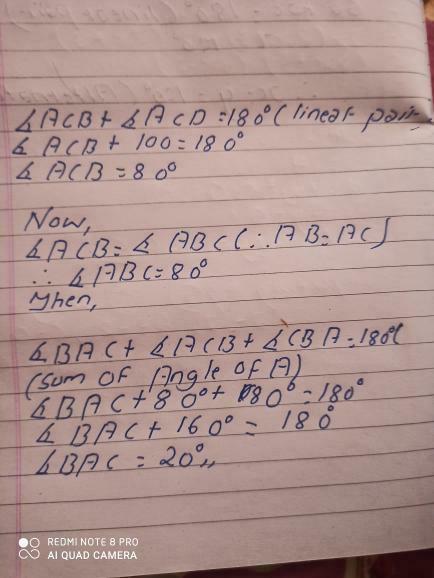 ∡ACB + ∡ACD = 180° (linear pair
∡ACB + 100 = 180°
∡ACB = 80°
Now,
∡ACB = ∡ABC (∴ AB = AC)
∴ ∡ABC = 80°
Then,
∡BAC + ∡ACB + ∡CBA = 180°(
(Sum OF Angle OF A)
∡BAC + 80° + 80° = 180°
∡BAC + 160° = 180°
∡BAC = 20°,,
REDMI NOTE 8 PRO
AI QUAD CAMERA